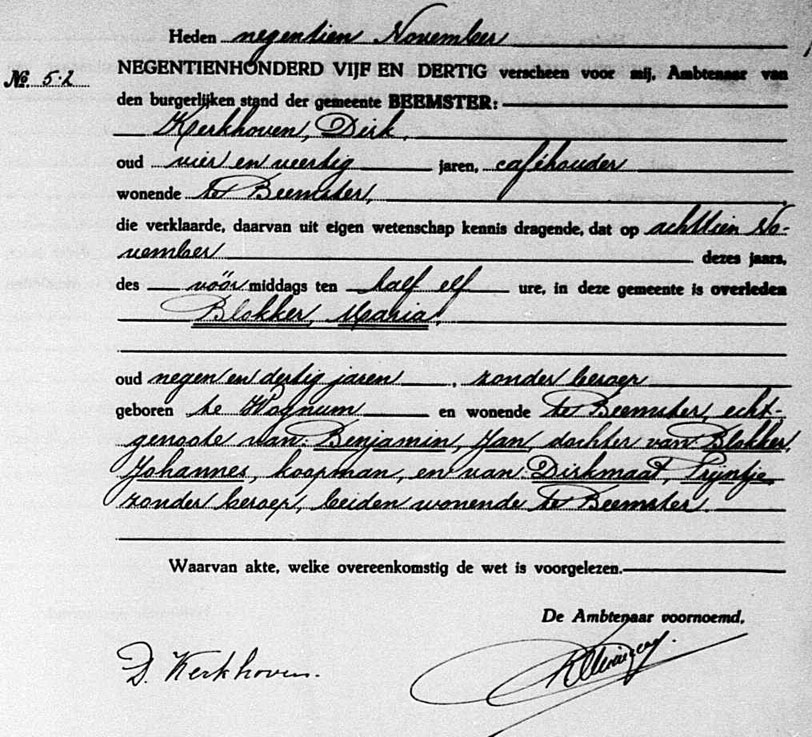 Heden negentien November
No. 52 NEGENTIENHONDERD VIJF EN DERTIG verscheen voor mij, Ambtenaar van
den burgerlijken stand der gemeente BEEMSTER:
Kerkhoven, Dirk,
oud vier en veertig jaren, caféhouder
wonende te Beemster,
die verklaarde, daarvan uit eigen wetenschap kennis dragende, dat op achttien No-
vember dezes jaars,
des vóór middags ten half elf ure, in deze gemeente is overleden
Blokker, Maria,
oud negen en dertig jaren, zonder beroep
geboren te Wognum en wonende te Beemster, echt-
genoote van Benjamin, Jan, dochter van Blokker,
Johannes, koopman, en van Dirkmaat, Trijntje,
zonder beroep, beiden wonende te Beemster.
Waarvan akte, welke overeenkomstig de wet is voorgelezen.
De Ambtenaar voornoemd,
D. Kerkhoven.